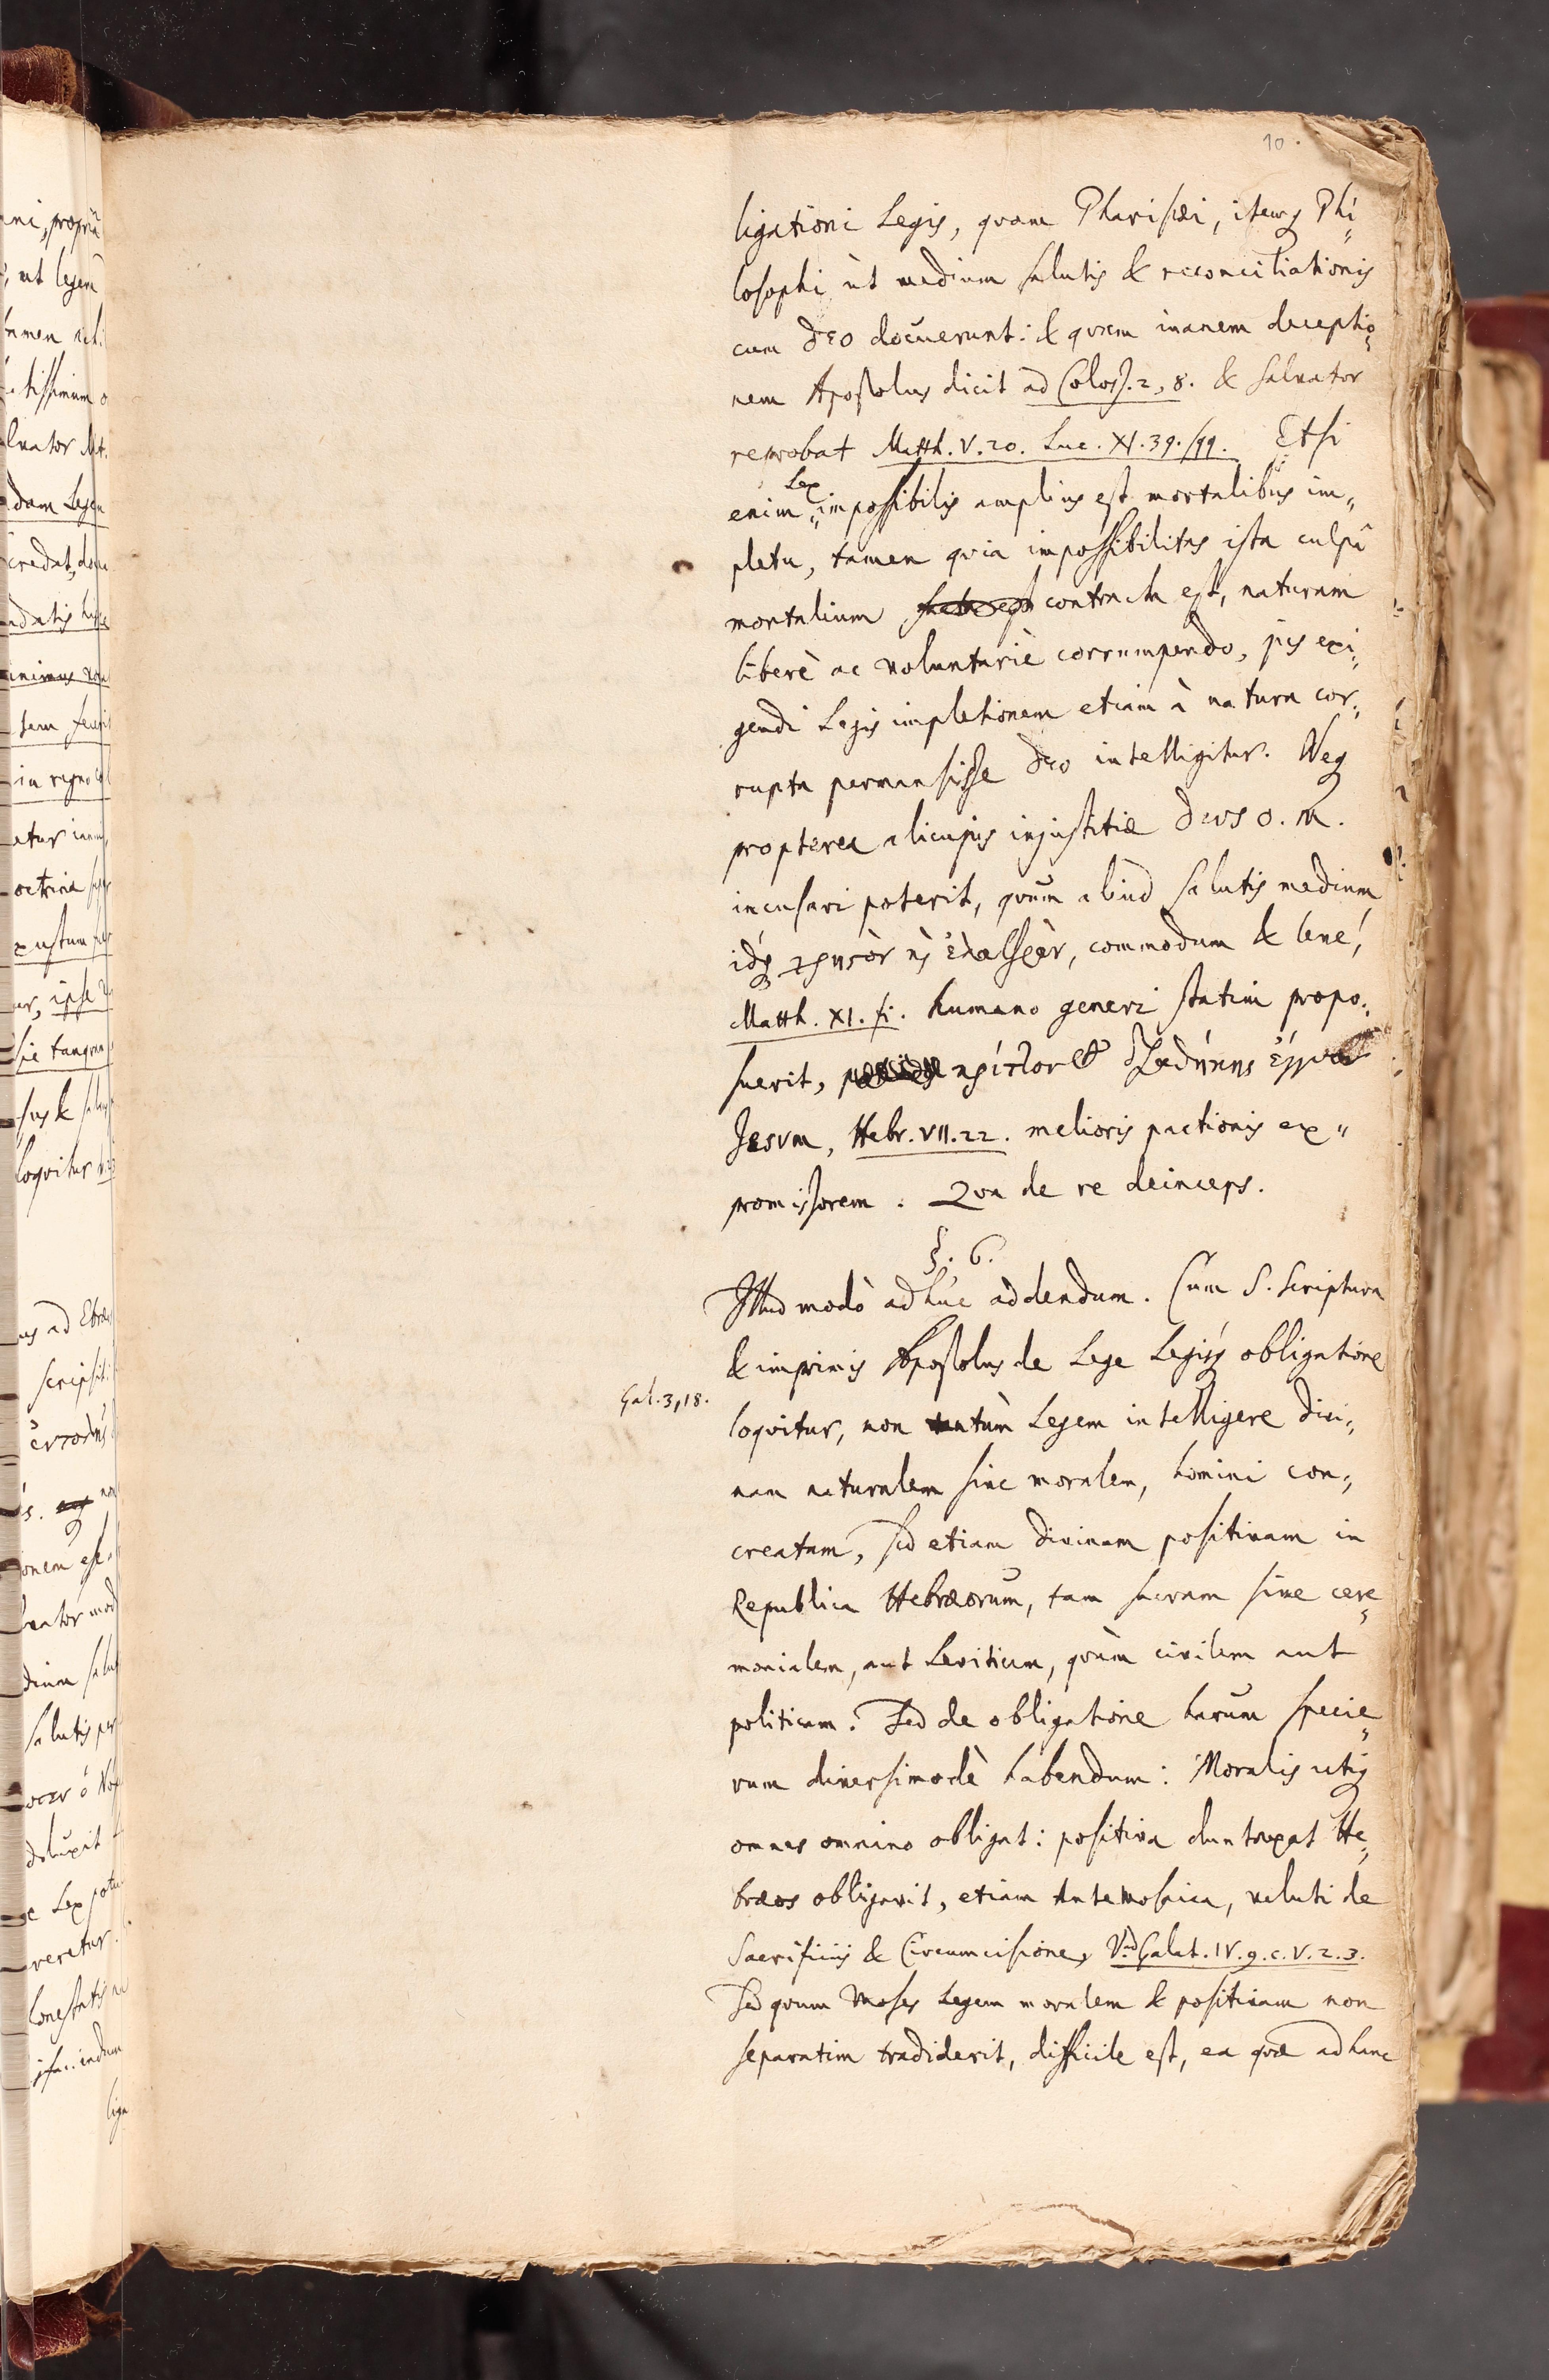 10.
ligationi Legis, quam Pharisæi, itemq Phi„
losophi ut medium salutis & reconciliationis
cum Deo docuerunt: & quem inanem deceptio„
nem Apostolus dicit ad Coloss. 2, 8. & Salvator
reprobat Matth. V. 20. Luc. XI. 39. sqq. Etsi
enim Lex impossibilis amplius est mortalibus im„
pletu, tamen quia impossibilitas ista culpâ
mortalium contracta est, naturam
liberè ac voluntariè corrumpendo, jus exi„
gendi Legis impletionem etiam à natura cor„
rupta permansisse Deo intelligitur. Neq
propterea alicujus injustitiæ Deus O. M.
incusari poterit, quum aliud salutis medium
idq χρηςὸν ϗ ἐλαφρὸν, commodum & lene,
Matth. XI. fi. humano generi statim propo„
suerit, κρείτλον διαθήκης ἔγγυον
Jesum, Hebr. VII. 22. melioris pactionis ex„
promissorem. Qua de re deinceps.
§. 6.
Illud modò adhuc addendum. Cum S. Scriptura
& imprimis Apostolus de Lege Legisq obligatione
Gal. 3, 18.
loquitur, non tantùm Legem intelligere divi„
nam naturalem sive moralem, homini con„
creatam, sed etiam divinam positivam in
Republica Hebræorum, tam sacram sive cere„
monialem, aut Leviticam, quàm civilem aut
politicam. Sed de obligatione harum specie„
rum diversimodè habendum: Moralis utiq
omnes omnino obligat: positiva duntaxat He„
bræos obligavit, etiam Antemosaica, veluti de
Sacrificiis & Circumcisione, Vid Galat. IV. 9. c. V. 2. 3.
Sed quum Moses Legem moralem & positivam non
separatim tradiderit, difficile est, ea quæ ad hanc